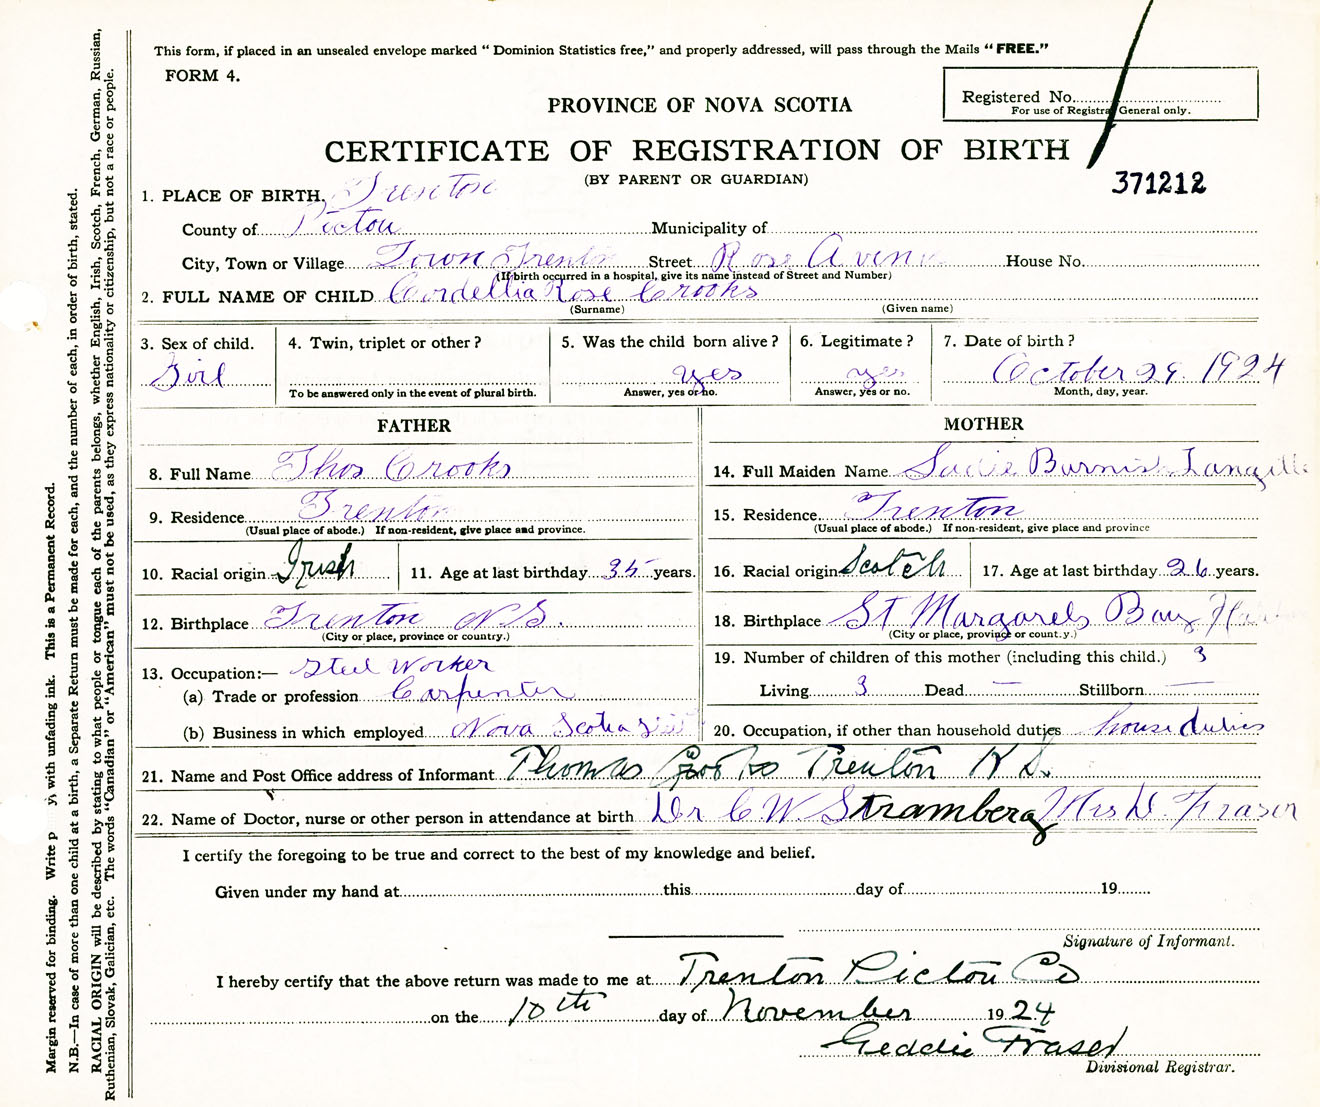 This form, if placed in an unsealed envelope marked "Dominion Statistics free," and properly addressed, will pass through the Mails "FREE."
FORM 4.
Registered No.
For use of Registrar General only.
PROVINCE OF NOVA SCOTIA
CERTIFICATE OF REGISTRATION OF BIRTH
(BY PARENT OR GUARDIAN)
371212
1. PLACE OF BIRTH, Trenton
County of Pictou Municipality of
City, Town or Village Town Trenton Street Rose Avenue House No.
(If birth occurred in a hospital, give its name instead of Street and Number)
2. FULL NAME OF CHILD Cordellia Rose Crooks
(Surname) (Given name)
3. Sex of child. 4. Twin, triplet or other? 5. Was the child born alive? 6. Legitimate? 7. Date of birth?
Girl yes yes October 29. 1924
To be answered only in the event of plural birth. Answer, yes or no. Answer, yes or no. Month, day, year.
FATHER MOTHER
8. Full Name Thos Crooks 14. Full Maiden Name Sadie Langille
9. Residence Trenton 15. Residence Trenton
(Usual place of abode.) If non-resident, give place and province. (Usual place of abode.) If non-resident, give place and province
10. Racial origin Irish 11. Age at last birthday 35 years. 16. Racial origin Scotch 17. Age at last birthday 26 years.
12. Birthplace Trenton N S. 18. Birthplace St Margarets Bay
(City or place, province or country.) (City or place, province or count.y.)
13. Occupation:— Steel Worker 19. Number of children of this mother (including this child.) 3
(a) Trade or profession Carpenter Living 3 Dead — Stillborn —
(b) Business in which employed Nova Scotia 20. Occupation, if other than household duties house duties
21. Name and Post Office address of Informant Thomas Crooks Trenton N S.
22. Name of Doctor, nurse or other person in attendance at birth Dr C. W. Stramberg Mrs D. Fraser
I certify the foregoing to be true and correct to the best of my knowledge and belief.
Given under my hand at this day of 19
Signature of Informant.
I hereby certify that the above return was made to me at Trenton Pictou Co
on the 10th day of November 1924
Geddie Fraser
Divisional Registrar.
Margin reserved for binding. Write p y, with unfading ink. This is a Permanent Record.
N.B.—In case of more than one child at a birth, a Separate Return must be made for each, and the number of each, in order of birth, stated.
RACIAL ORIGIN will be described by stating to what people or tongue each of the parents belongs, whether English, Irish, Scotch, French, German, Russian,
Ruthenian, Slovak, Galician, etc. The words "Canadian" or "American" must not be used, as they express nationality or citizenship, but not a race or people.